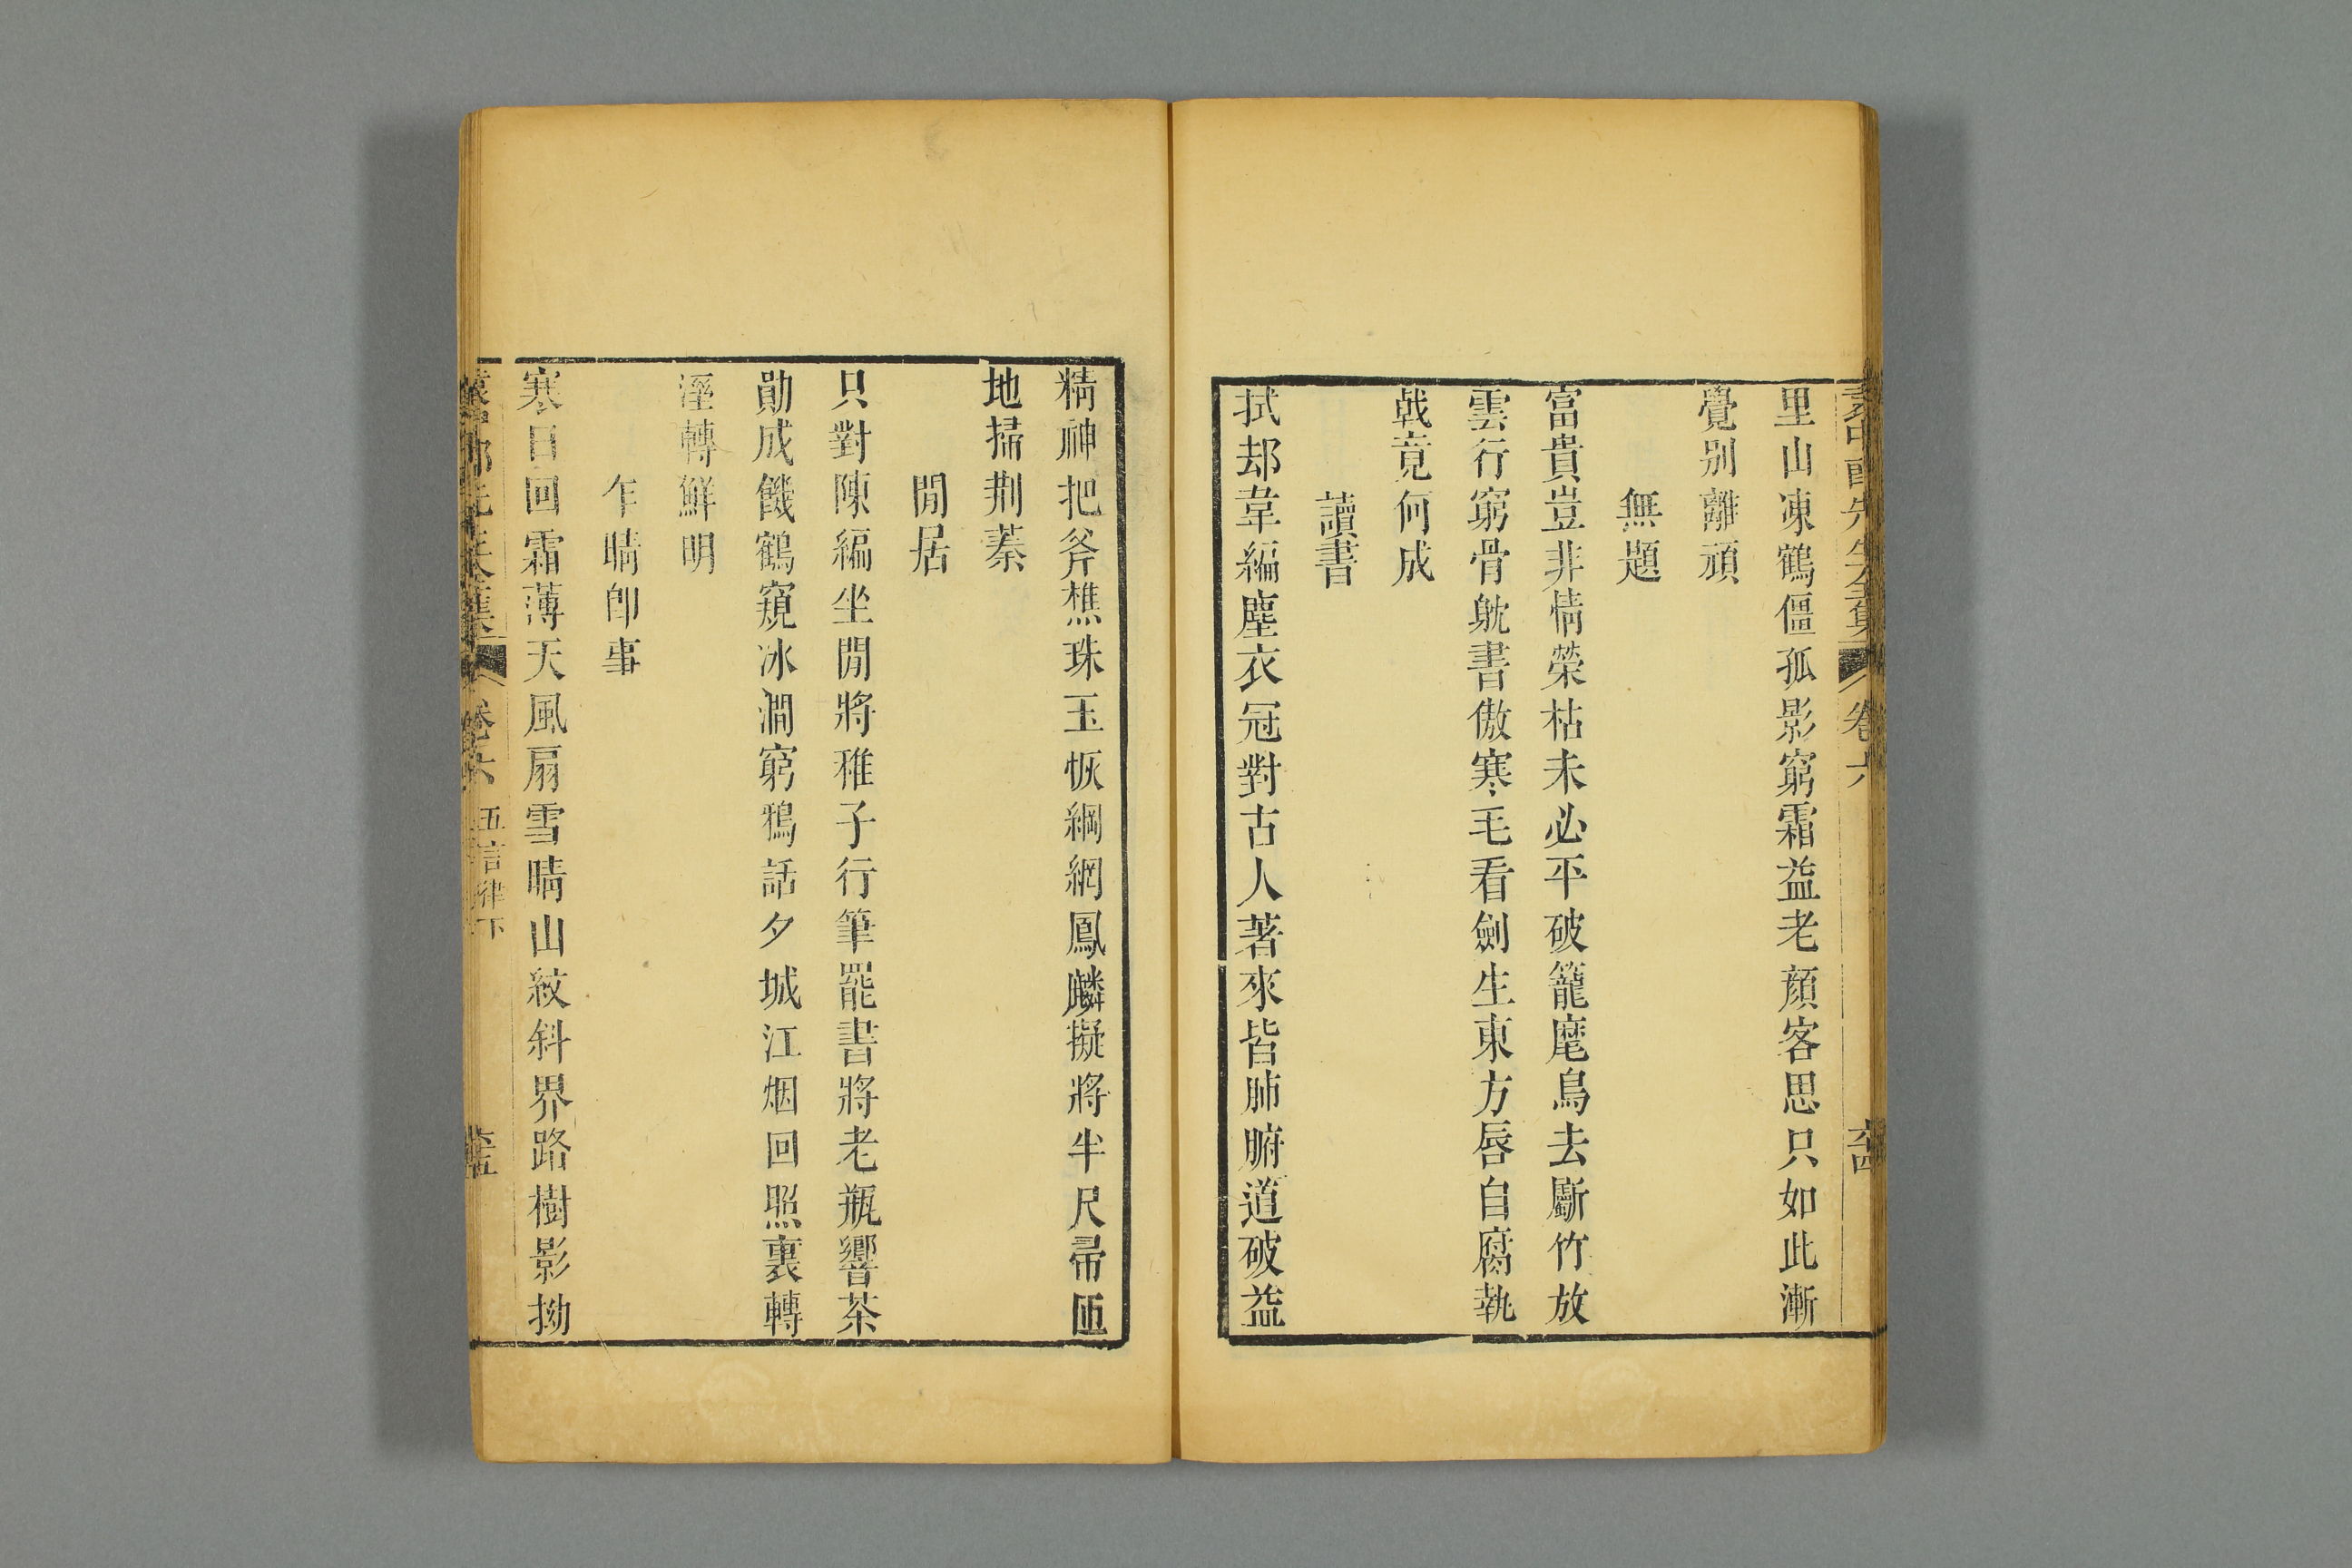 里山凍鶴僵孤影窮霜益老顔客思只如此漸
覺别離頑
無題
富貴豈非情榮枯未必平破籠麾鳥去斸竹放
雲行窮骨躭書傲寒毛看劍生東方唇自腐執
戟竟何成
讀書
拭却韋編塵衣冠對古人著來皆肺腑道破益
精神把斧樵珠玉恢綱網鳳麟擬將半尺帚匝
地掃荆蓁
閒居
只對陳編坐閒將稚子行筆罷書將老瓶響茶
勛成饑鶴窺冰澗窮鴉話夕城江烟回照裏轉
溼轉鮮明
乍晴即事
寒日回霜薄天風扇雪晴山紋斜界路樹影拗
卷六
五言律下